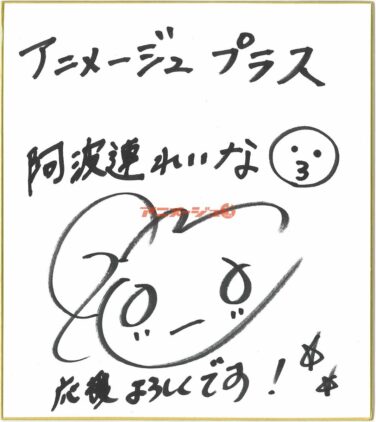 アニメージュ プラス
阿波連れいな
アニメージュ+
応援よろしくです!